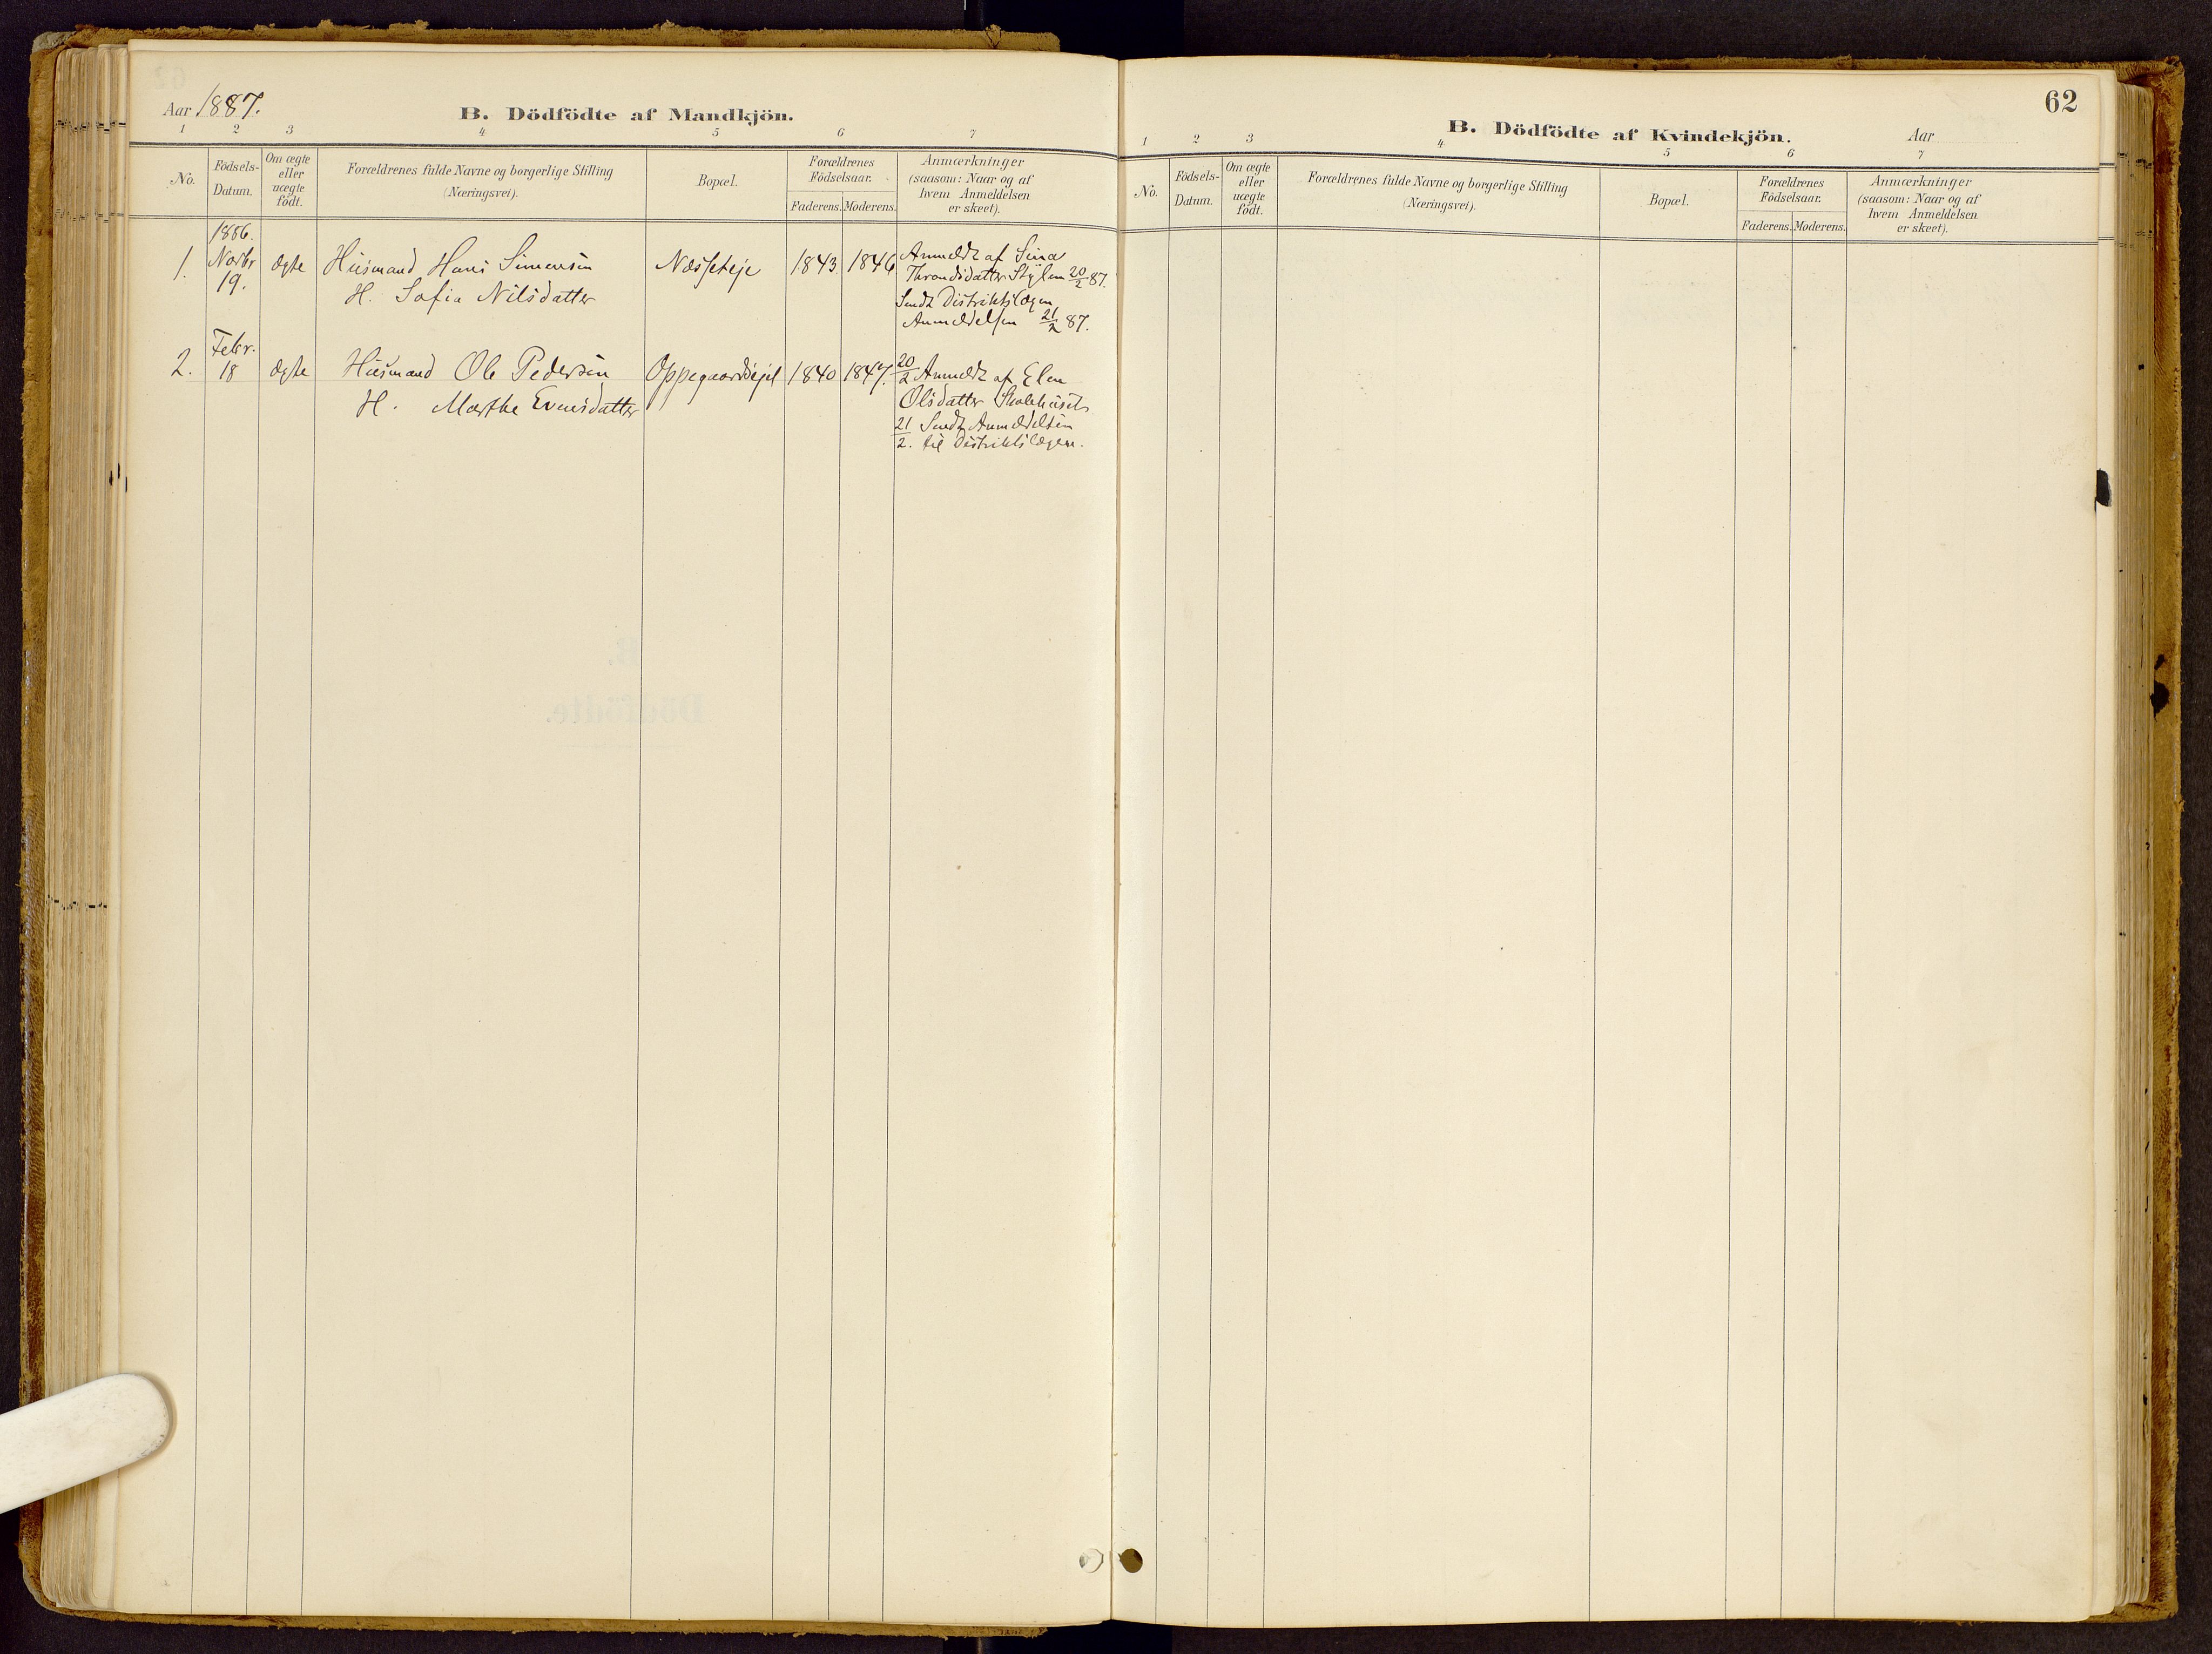 Aar 1887.
B. Dödfödte af Mandkjön.
1 2 3 4 5 6 7
No.
Födsels-
Datum.
Om ægte
eller
uægte
födt.
Forældrenes fulde Navne og borgerlige Stilling
(Næringsvei).
Bopæl.
Forældrenes
Födselsaar.
Faderens. Moderens.
Anmærkninger
(saasom: Naar og af
hvem Anmeldelsen
er skeet).
1.
1886.
Novbr
19.
ægte
Husmand Hans Simensen
H. Sofia Nilsdatter
Næsseteje
1843
1846
Anmeldt af Sina
Throndsdatter Stylen 20/2 87.
Sendt Distriktslægen
Anmeldelsen 21/2 87.
2.
Febr.
18
ægte
Husmand Ole Pedersen
H. Marthe Evensdatter
Oppegaardsejet
1840
1847.
20/2 Anmeldt af Elen
Olsdatter Skolehuset
21/2. Sendt Anmeldelsen
til Distriktslægen.
62
B. Dödfödte af Kvindekjön.
Aar
1 2 3 4 5 6 7
No.
Födsels-
Datum.
Om ægte
eller
uægte
födt.
Forældrenes fulde Navne og borgerlige Stilling
(Næringsvei).
Bopæl.
Forældrenes
Födselsaar.
Faderens. Moderens.
Anmærkninger
(saasom: Naar og af
hvem Anmeldelsen
er skeet).